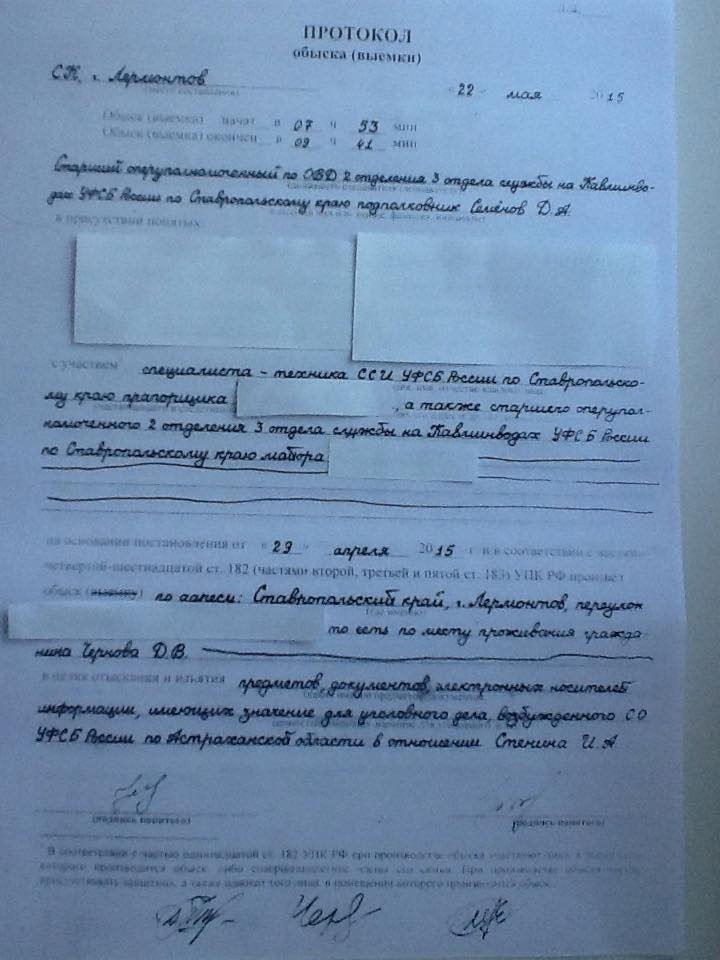 ПРОТОКОЛ
обыска (выемки)
СК, г. Лермонтов
« 22 » мая 2015
Обыск (выемка) начат в 07 ч 53 мин
Обыск (выемка) окончен в 09 ч 41 мин
Старший оперуполномоченный по ОВД 2 отделения 3 отдела службы на Кавминво-
дах УФСБ России по Ставропольскому краю подполковник Семёнов Д.А.
в присутствии понятых:
с участием специалиста - техника ССИ УФСБ России по Ставропольско-
му краю прапорщика , а также старшего оперупол-
номоченного 2 отделения 3 отдела службы на Кавминводах УФСБ России
по Ставропольскому краю майора
на основании постановления от « 29 » апреля 2015 г и в соответствии с частями
четвертой-шестнадцатой ст. 182 (частями второй, третьей и пятой ст. 183) УПК РФ произвел
обыск (выемку) по адресу: Ставропольский край, г. Лермонтов, переулок
то есть по месту проживания гражда-
нина Чернова Д.В.
в целях отыскания и изъятия предметов, документов, электронных носителей
информации, имеющих значение для уголовного дела, возбужденного СО
УФСБ России по Астраханской области в отношении Стенина И.А
(подпись понятого) (подпись понятого)
В соответствии с частью одиннадцатой ст. 182 УПК РФ при производстве обыска участвуют лицо, в помещении
которого производится обыск, либо совершеннолетние члены его семьи. При производстве обыска вправе
присутствовать защитник, а также адвокат того лица, в помещении которого производится обыск.